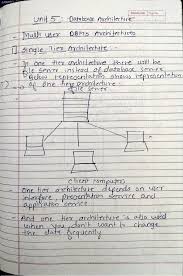 Unit 5: Database Architecture
Multi user DBMS Architectures
Single Tier Architecture -
In one tier architecture there will be
file server instead of database server.
Below representation shows representation
of One tier architecture -
file server
Client Computers
- One tier architecture depends on user
interface, presentation service and
application service
- And one tier architecture is also used
when you don't want to change
the data frequently